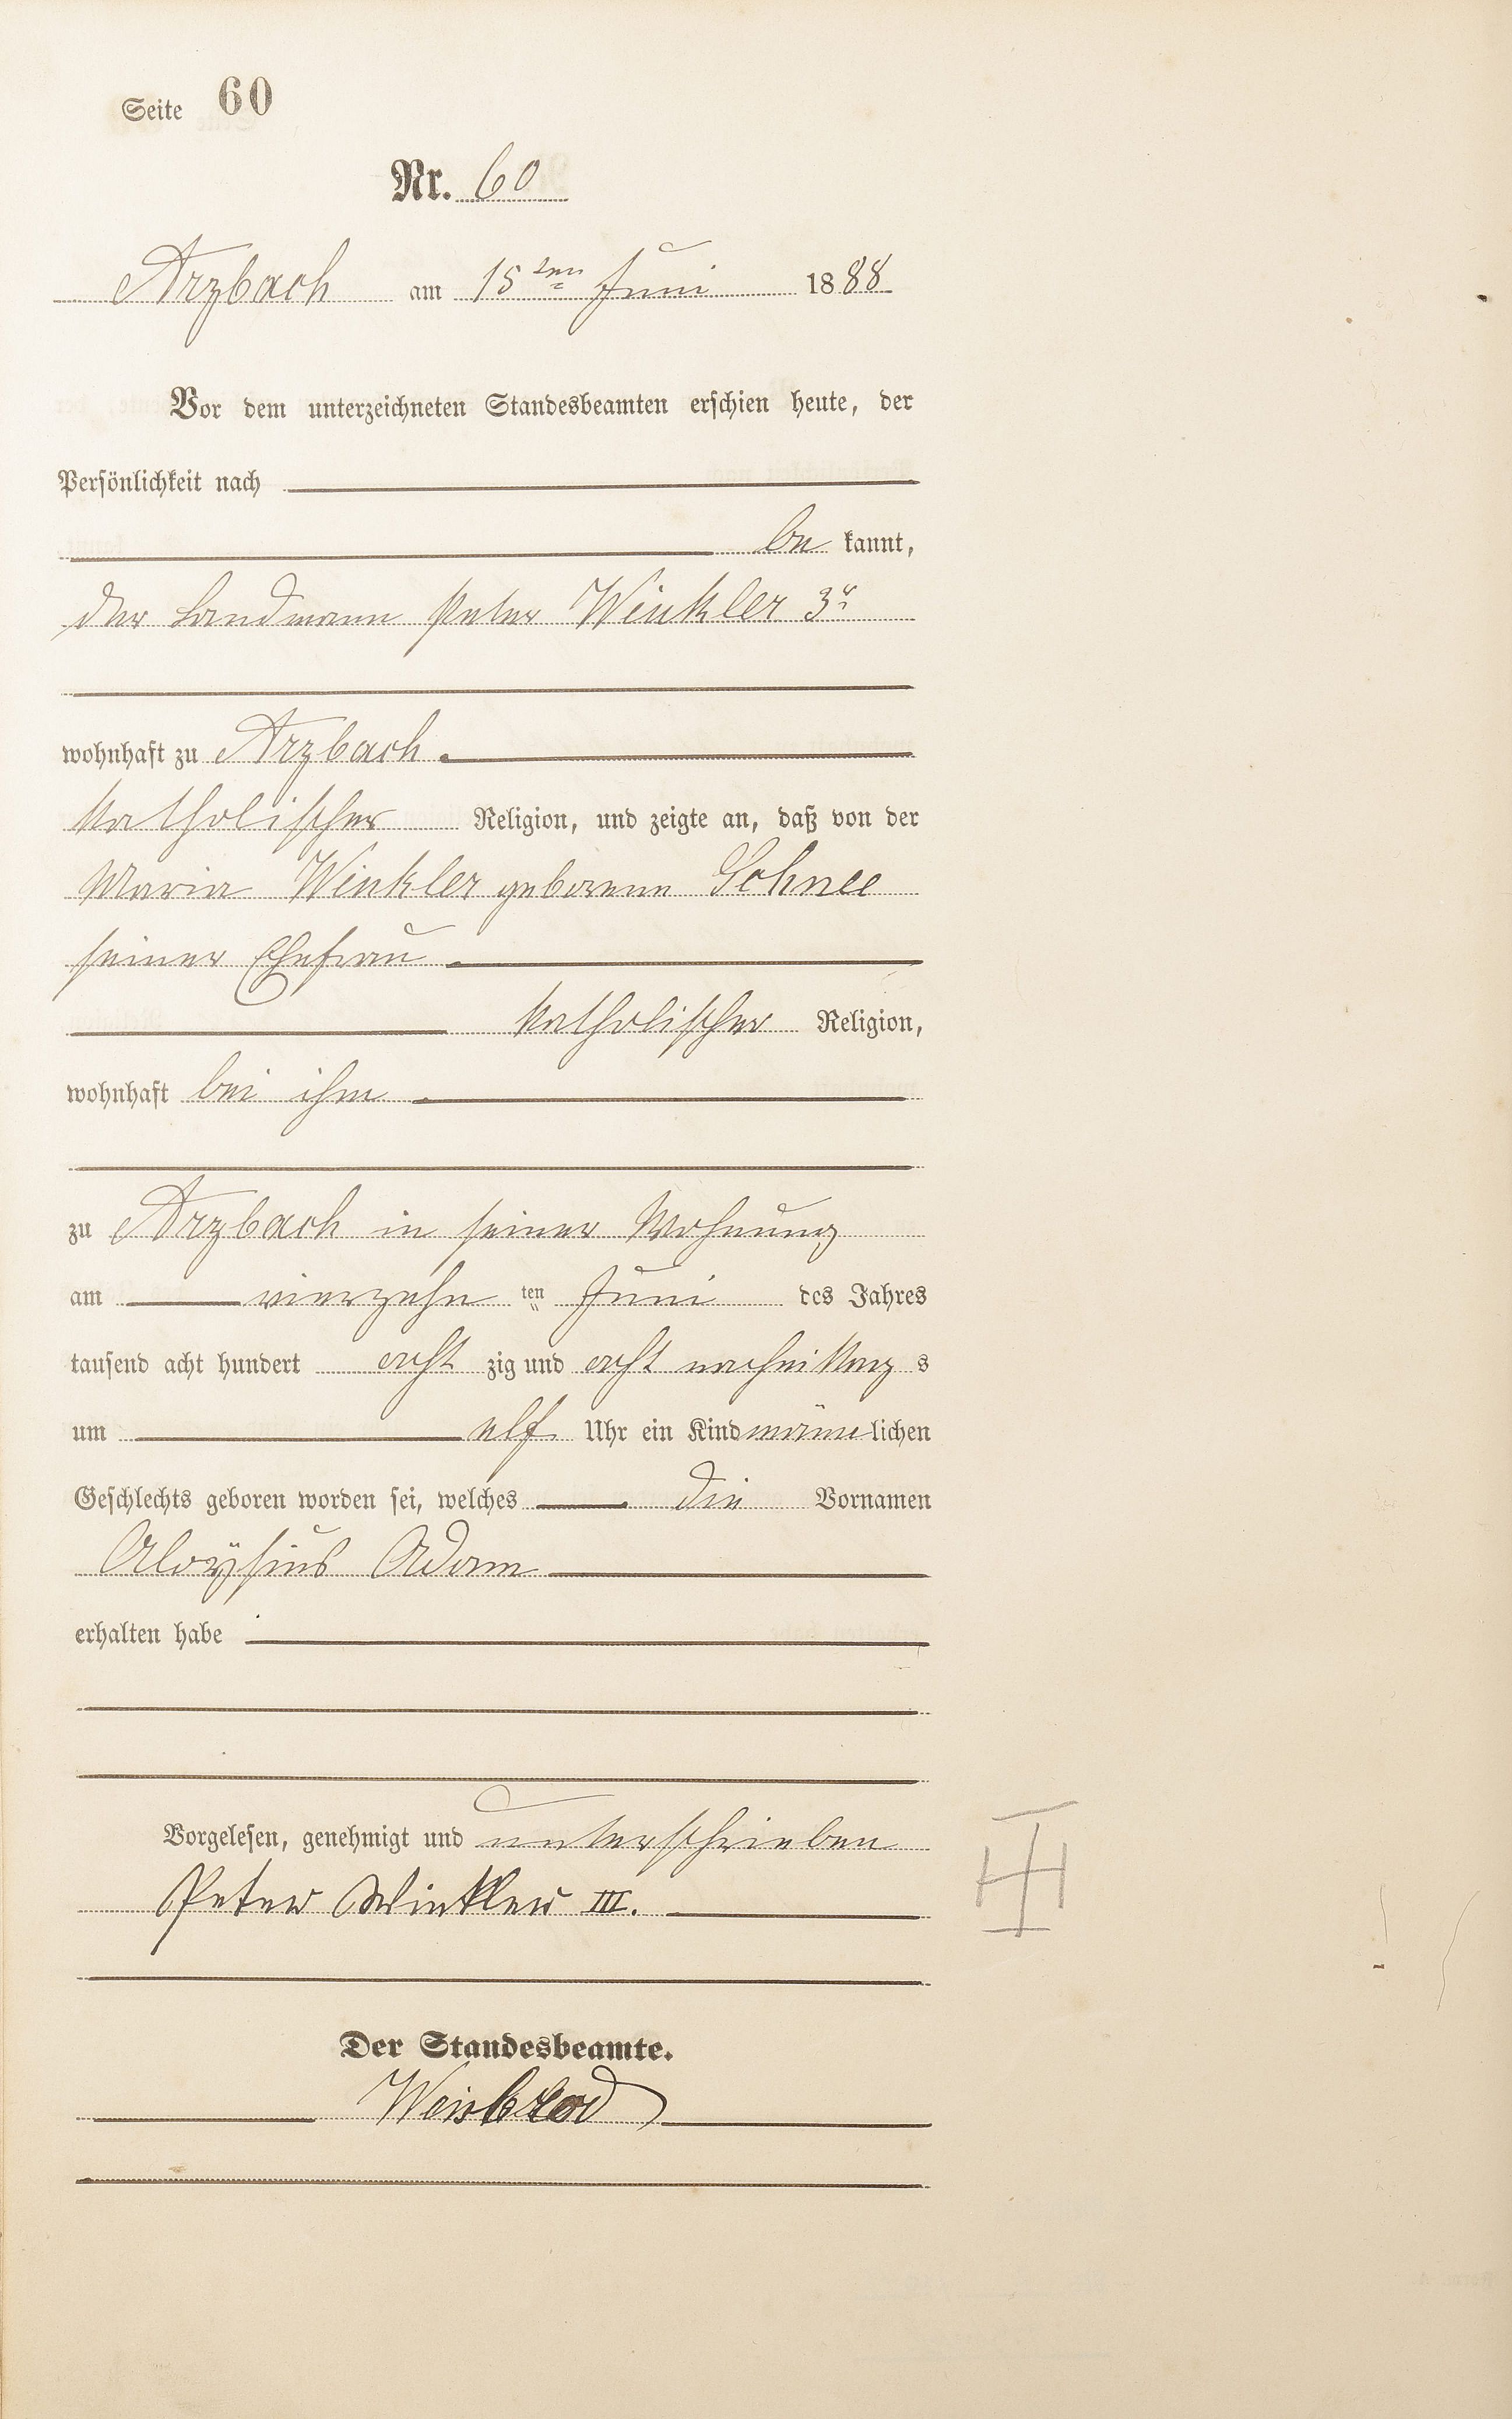 Seite 60
Nr. 60
Arzbach am 15ten Juni 1888
Vor dem unterzeichneten Standesbeamten erschien heute, der
Persönlichkeit nach
be kannt,
der Landmann Peter Winkler 3r
wohnhaft zu Arzbach
katholischer Religion, und zeigte an, daß von der
Maria Winkler geborene Schnee
seiner Ehefrau
katholischer Religion,
wohnhaft bei ihm
zu Arzbach in seiner Wohnung
am vierzehn ten Juni des Jahres
tausend acht hundert acht zig und acht nachmittag s
um elf Uhr ein Kind männlichen
Geschlechts geboren worden sei, welches die Vornamen
Aloysius Adam
erhalten habe
Vorgelesen, genehmigt und unterschrieben
Peter Winkler III.
Der Standesbeamte.
Weisbrod